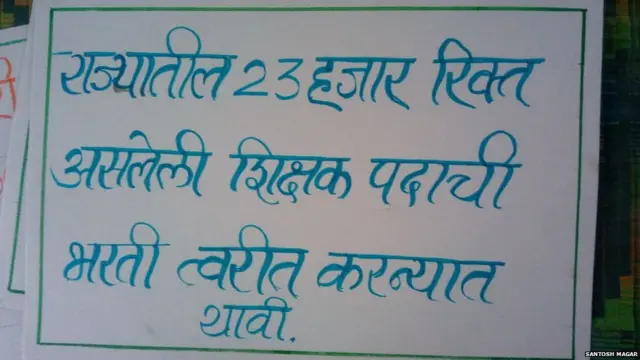 राज्यातील 23 हजार रिक्त
असलेली शिक्षक पदाची
भरती त्वरीत करन्यात
यावी.
SANTOSH MAGAR